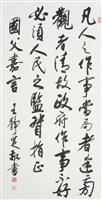 凡人之作事當局者迷旁
觀者清故政府作事不好
必須人民之監督指正
國父嘉言 王靜芝敬書